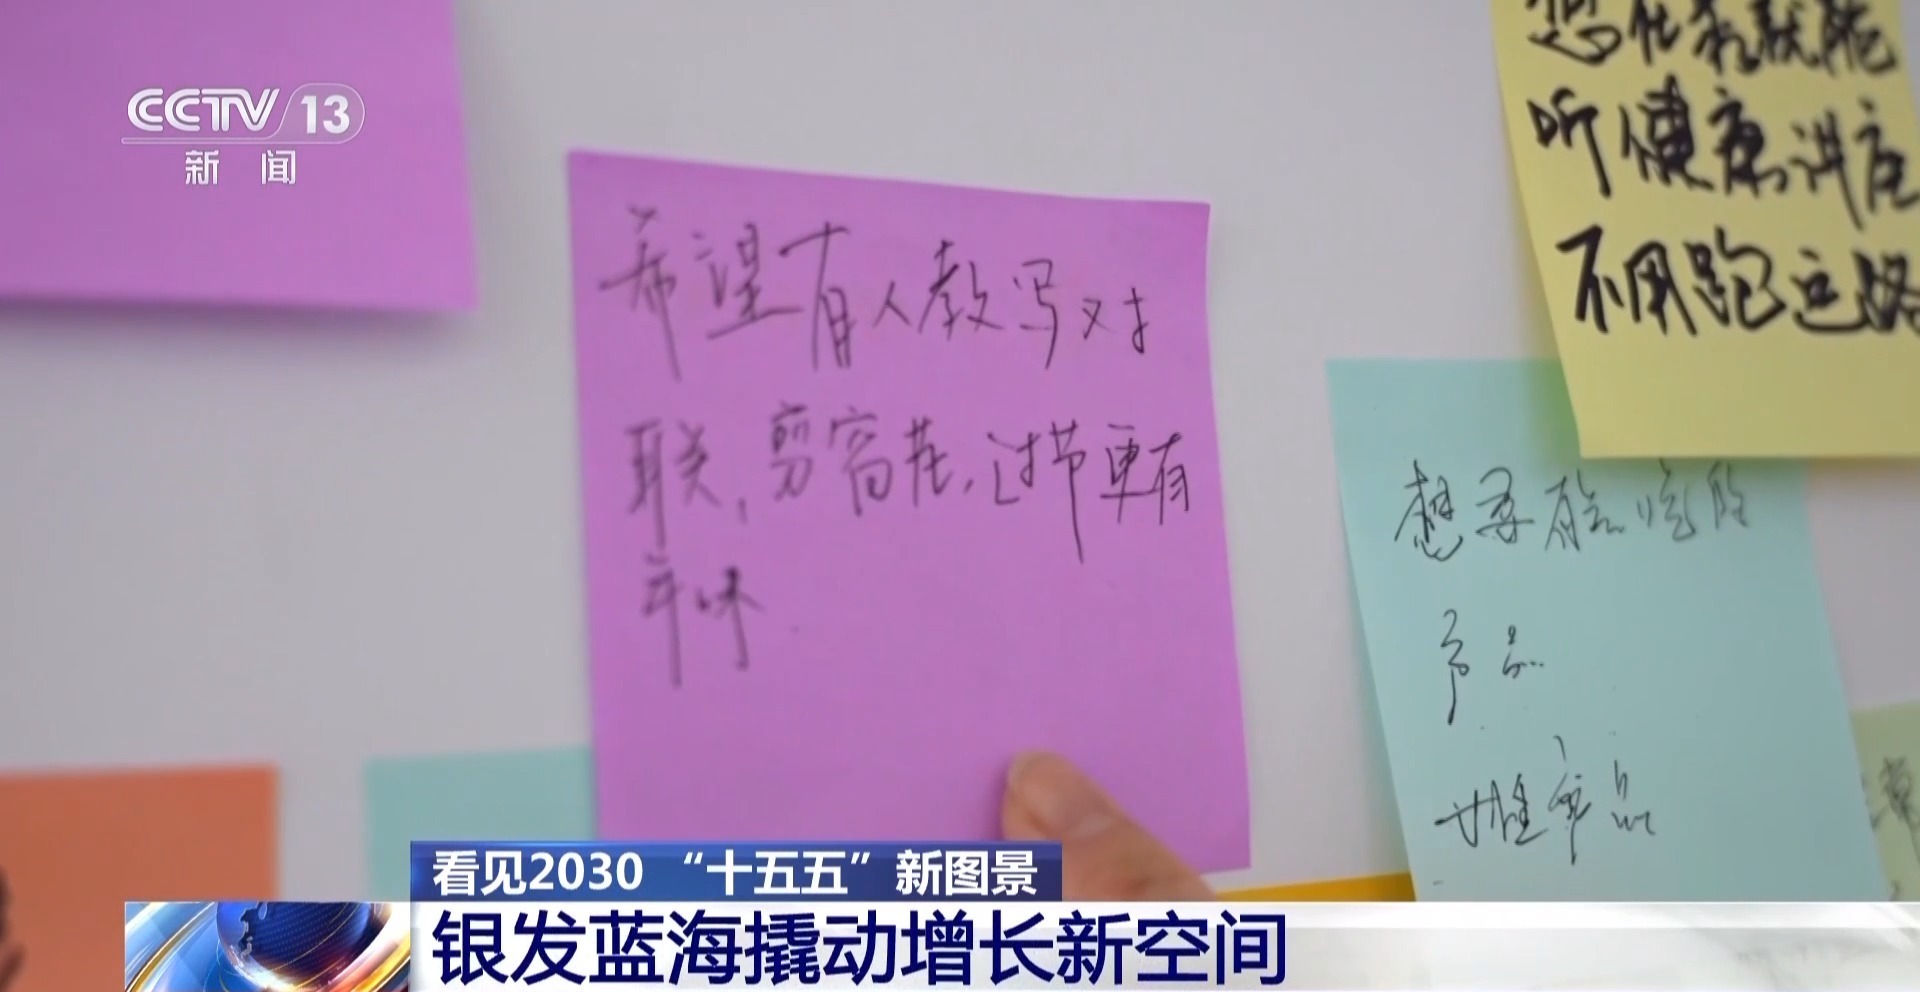 CCTV 13
新闻
希望有人教写对
联，剪窗花，过节更有
年味
想在家就能
听健康讲座
不用跑远路
想
产品
品
看见2030 “十五五”新图景
银发蓝海撬动增长新空间